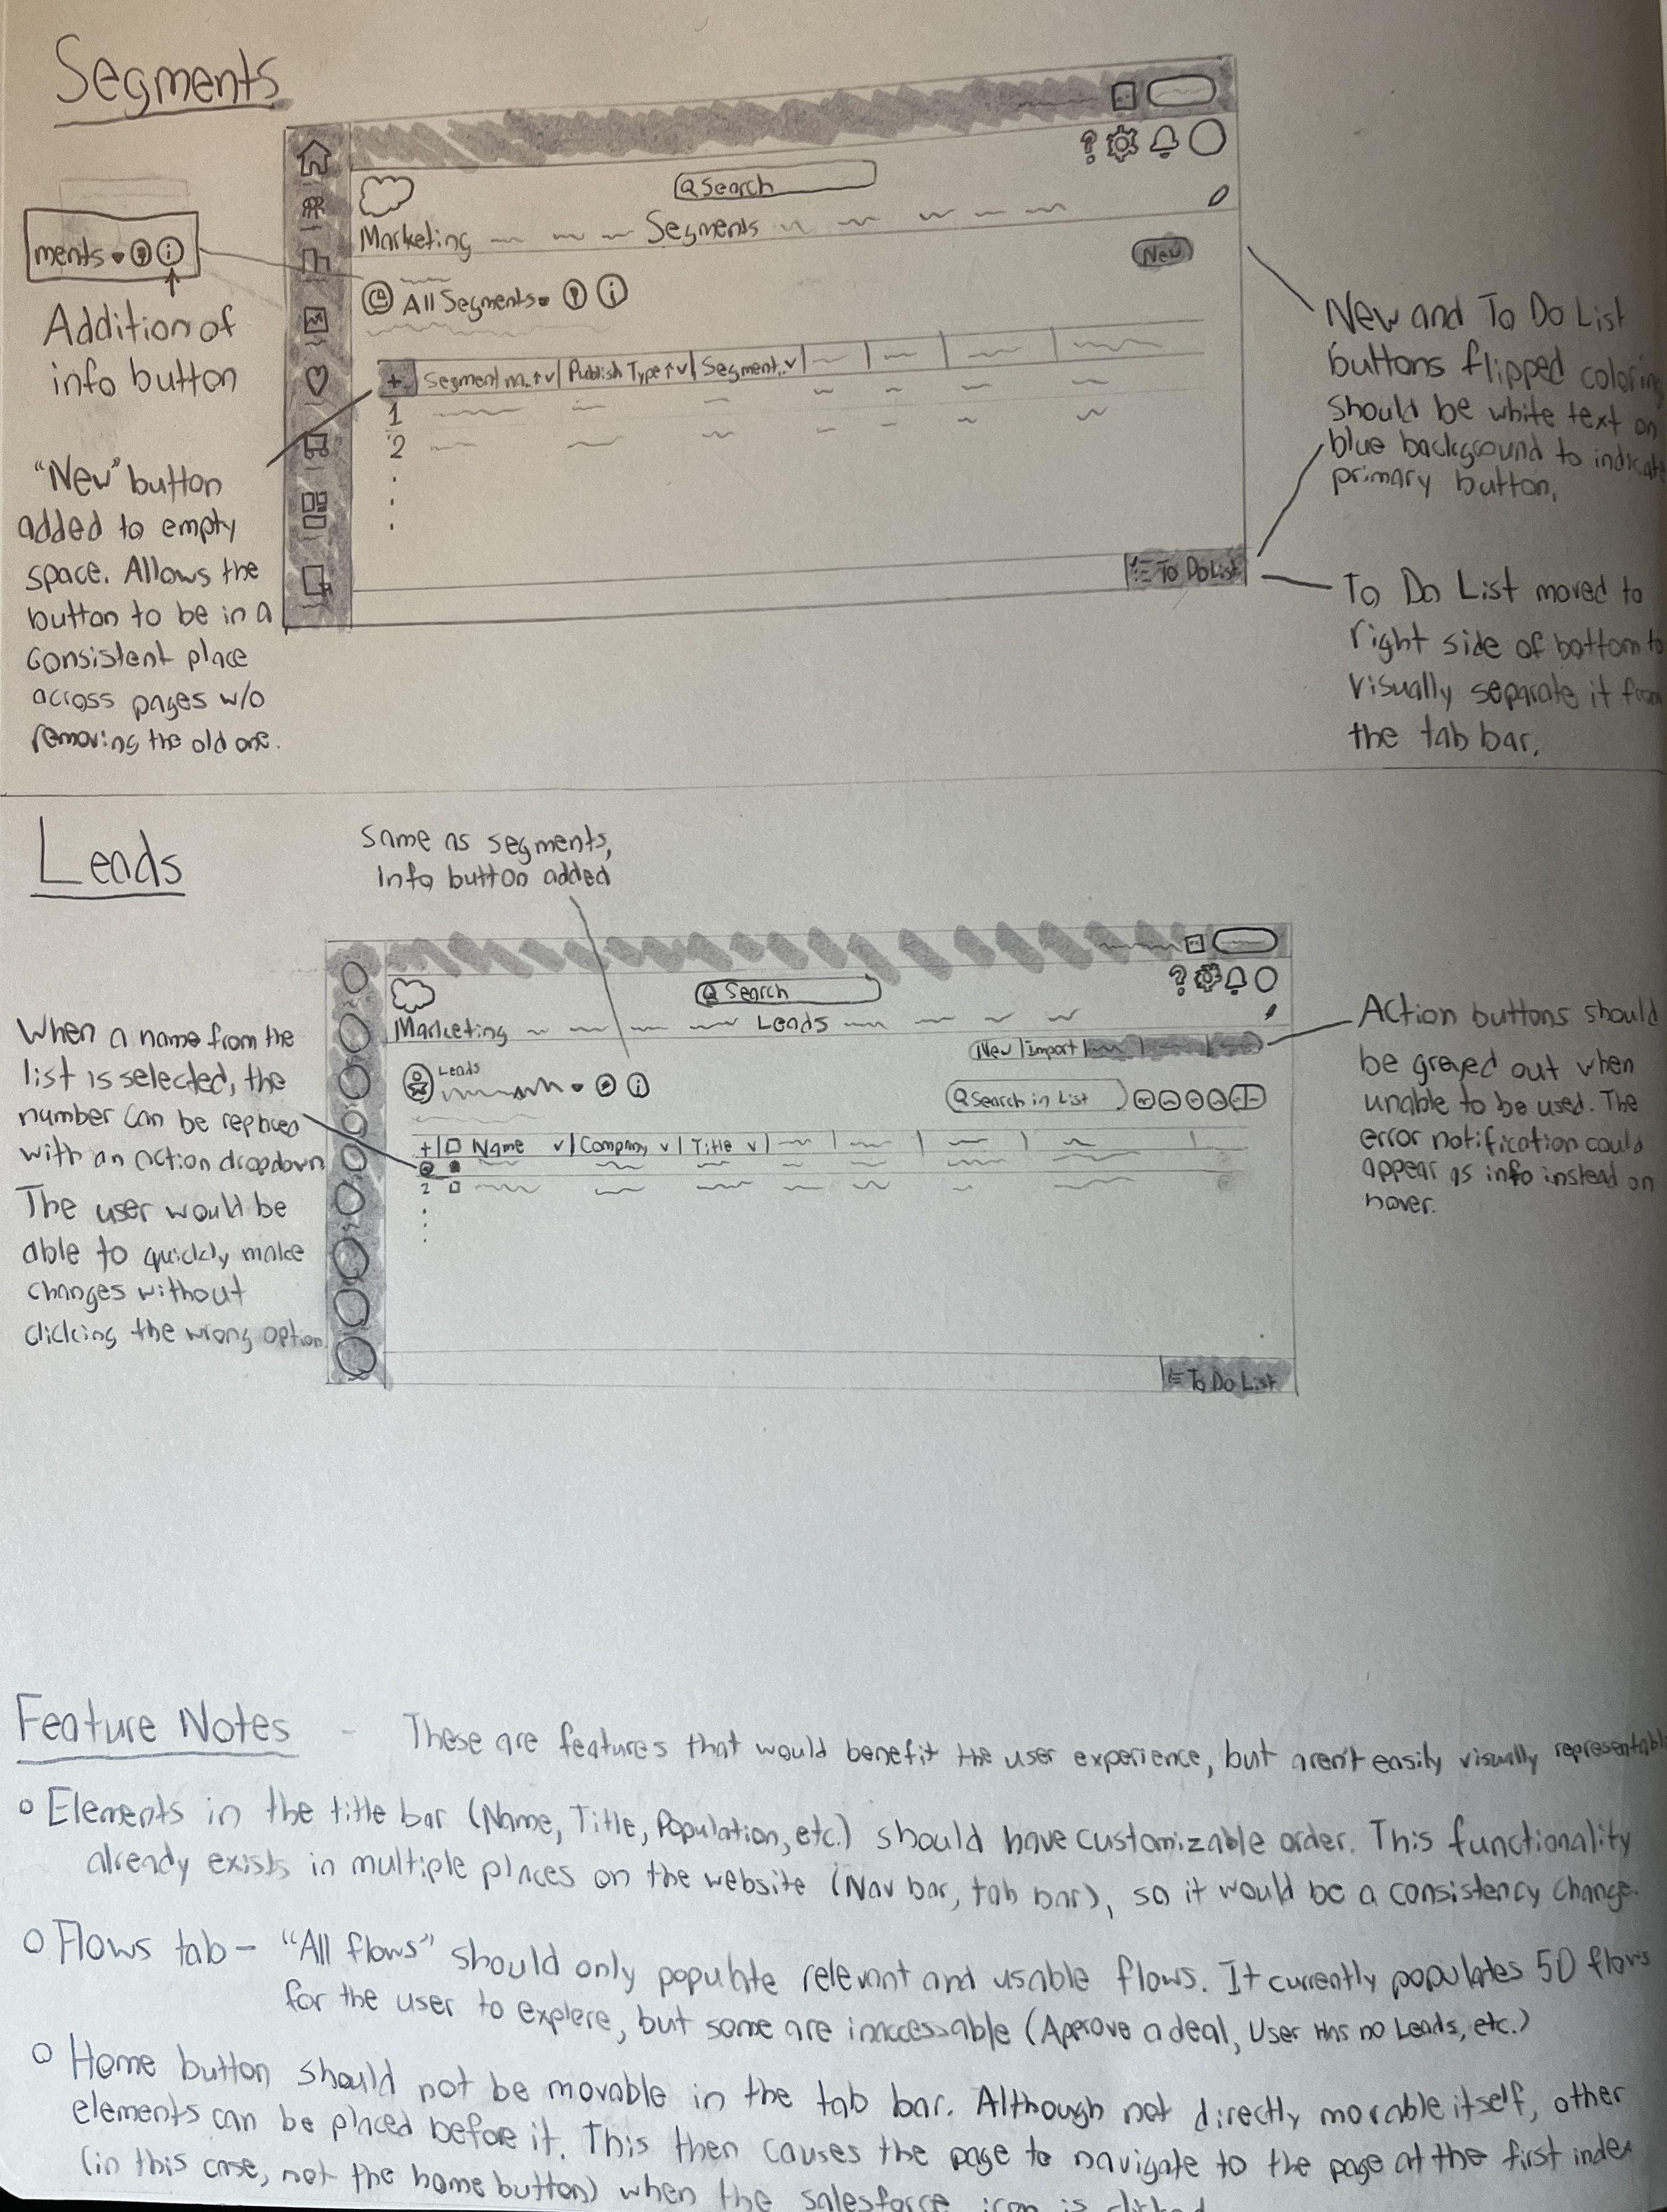 Segments
Search
Marketing Segments
New
All Segments
+ Segment n.. Publish Type Segment..
1
2
To Do List
ments
Addition of
info button
"New" button
added to empty
space. Allows the
button to be in a
consistent place
across pages w/o
removing the old one.
New and To Do List
buttons flipped coloring
should be white text on
blue background to indicate
primary button.
To Do List moved to
right side of bottom to
visually separate it from
the tab bar.
Leads
Same as segments,
Info button added
Search
Marketing Leads
New | Import |
Leads
Search in List
+ | Name | Company | Title
2
To Do List
When a name from the
list is selected, the
number can be replaced
with an action dropdown
The user would be
able to quickly make
changes without
clicking the wrong option.
Action buttons should
be greyed out when
unable to be used. The
error notification could
appear as info instead on
hover.
Feature Notes - These are features that would benefit the user experience, but aren't easily visually representable
o Elements in the title bar (Name, Title, Population, etc.) should have customizable order. This functionality
already exists in multiple places on the website (Nav bar, tab bar), so it would be a consistency change.
o Flows tab - "All flows" should only populate relevant and usable flows. It currently populates 50 flows
for the user to explere, but some are inaccessable (Approve a deal, User Has no Leads, etc.)
o Home button should not be movable in the tab bar. Although not directly movable itself, other
elements can be placed before it. This then causes the page to navigate to the page at the first index
(in this case, not the home button) when the salesforce icon is clicked